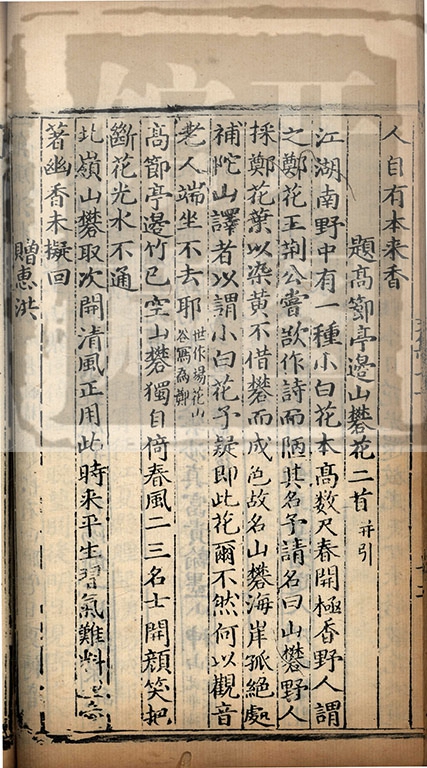 人自有本来香
題高節亭邊山礬花二首 并引
江湖南野中有一種小白花本高數尺春開極香野人謂
之鄭花王荆公嘗欲作詩而陋其名予請名曰山礬野人
採鄭花葉以染黄不借礬而成色故名山礬海岸孤絶處
補陀山譯者以謂小白花予疑即此花爾不然何以觀音
老人端坐不去耶 世作場花山
谷寫為鄭
高節亭邊竹已空山礬獨自倚春風二三名士開顔笑把
斷花光水不通
北嶺山礬取次開清風正用此時来平生習氣難料
著幽香未擬回
贈惠洪